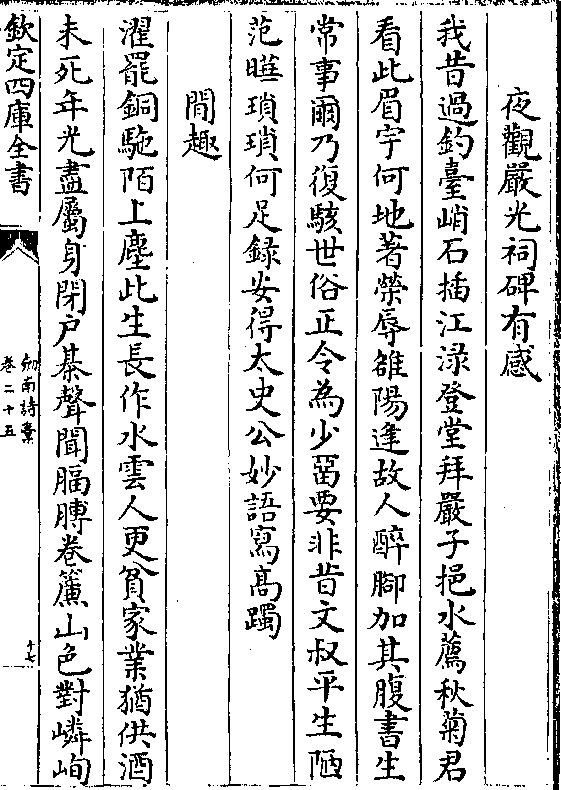 夜觀嚴光祠碑有感
我昔過釣臺峭石插江淥登堂拜嚴子挹水薦秋菊君
看此眉宇何地著榮辱雒陽逢故人醉腳加其腹書生
常事爾乃復駭世俗正令為少留要非昔文叔平生陋
范曄瑣瑣何足録安得太史公妙語寫髙躅
閒趣
濯罷銅駞陌上塵此生長作水雲人更貧家業猶供酒
未死年光盡屬身閉户棊聲聞腷膊卷簾山色對嶙峋
欽定四庫全書
劒南詩藁
卷二十五
十七